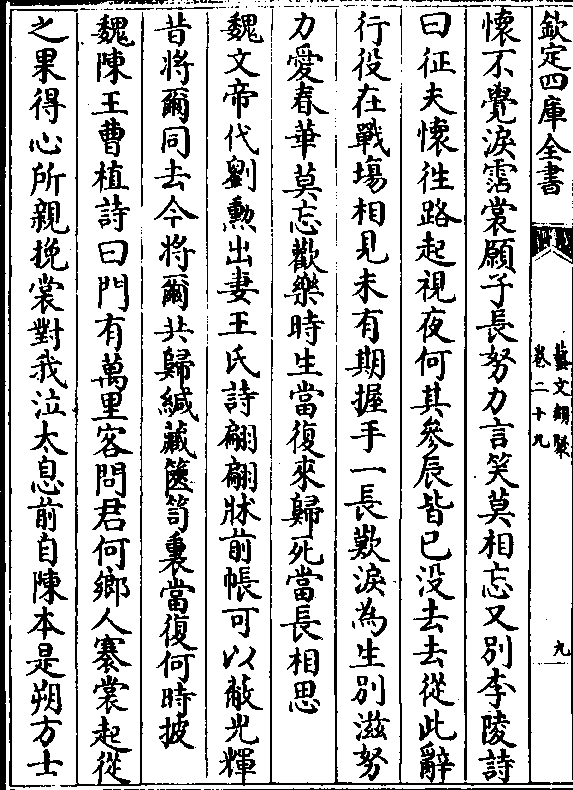 欽定四庫全書
藝文類聚
卷二十九
九
懷不覺淚霑裳願子長努力言笑莫相忘又別李陵詩
曰征夫懷往路起視夜何其參辰皆已没去去從此辭
行役在戰塲相見未有期握手一長歎淚為生別滋努
力愛春華莫忘歡樂時生當復來歸死當長相思
魏文帝代劉勲出妻王氏詩翩翩牀前帳可以蔽光輝
昔將爾同去今將爾共歸緘藏篋笥裏當復何時披
魏陳王曹植詩曰門有萬里客問君何鄉人褰裳起從
之果得心所親挽裳對我泣太息前自陳本是朔方士